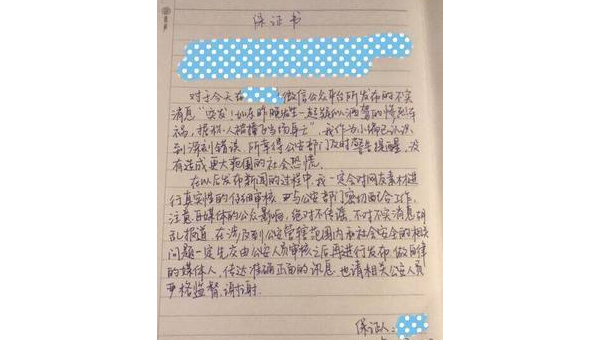 保证书
对于今天在 微信公众平台所发布的不实
消息“突发!如东昨晚发生一起疑似酒驾的惨烈车
祸,据称一人被撞了当场身亡”,我作为小编已认识
到深刻错误,所幸得公安部门及时警告提醒,没
有造成更大范围的社会恐慌。
在以后发布新闻的过程中,我一定会对网友素材进
行真实性的仔细审核,更与公安部门密切配合工作,
注意自媒体的公众影响,绝对不传谣,不对不实消息胡
乱报道,在涉及到公安管辖范围内和社会安全的相关
问题一定先交由公安人员审核之后再进行发布,做自律
的媒体人,传达准确正面的讯息,也请相关公安人员
严格监督,谢谢.
保证人: